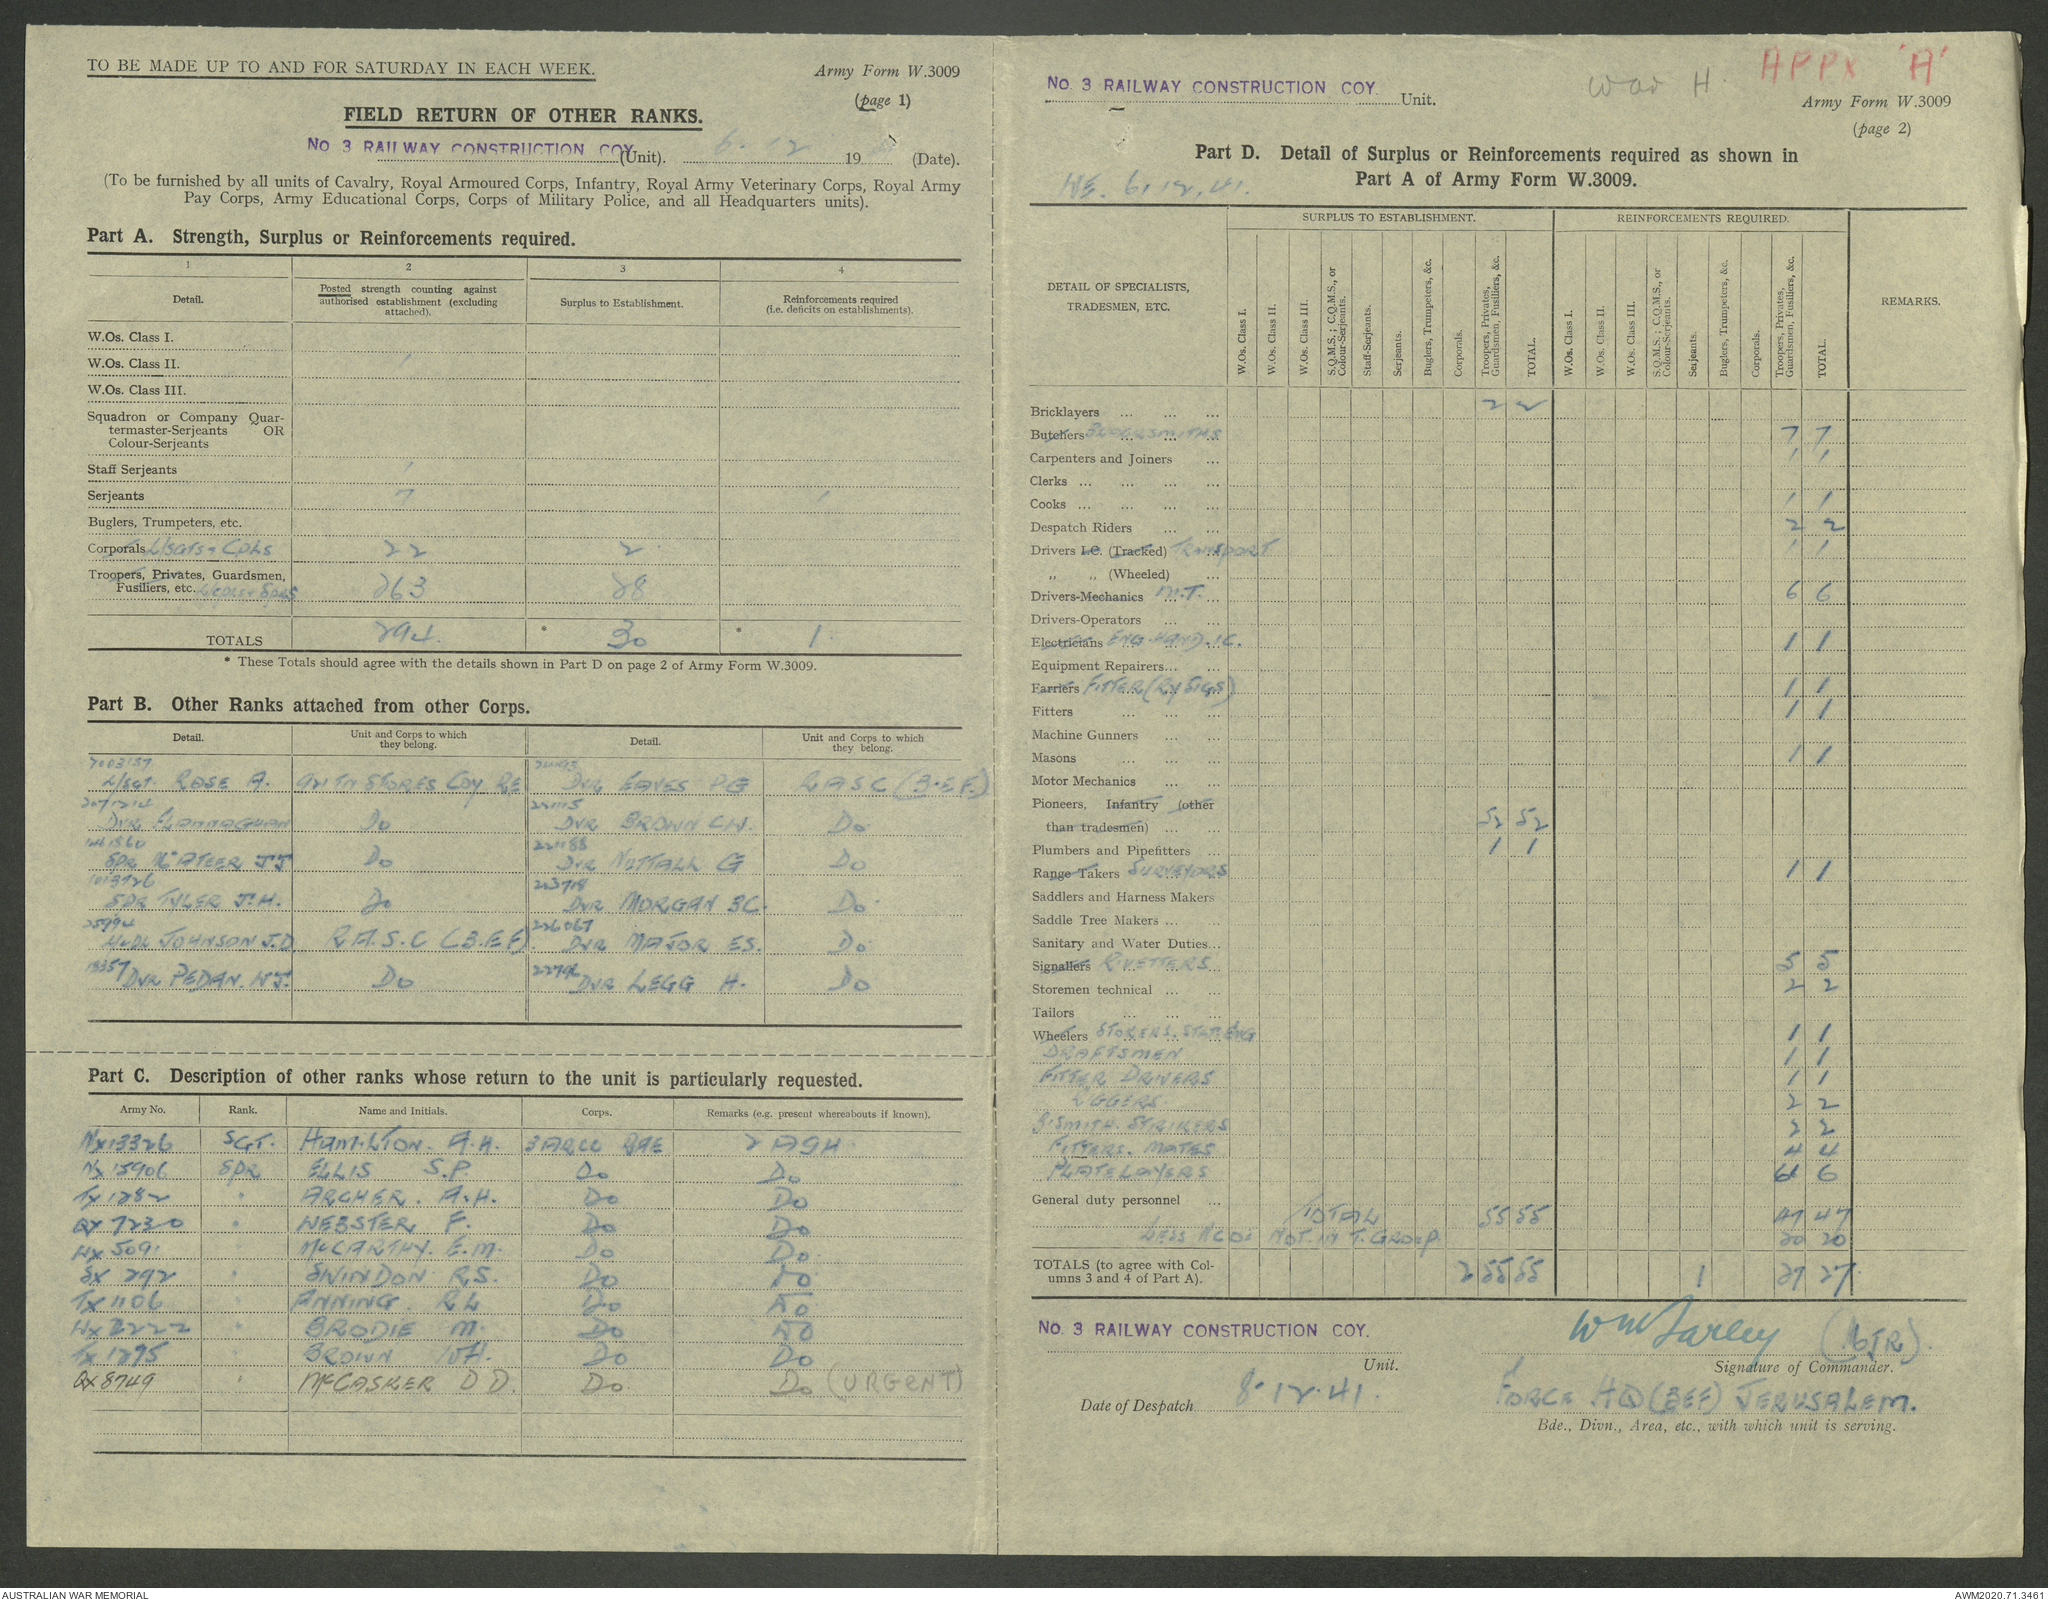 TO BE MADE UP TO AND FOR SATURDAY IN EACH WEEK.
Army Form W.3009
(page 1)
FIELD RETURN OF OTHER RANKS.
No 3 RAILWAY CONSTRUCTION COY (Unit). 6.12 19 (Date).
(To be furnished by all units of Cavalry, Royal Armoured Corps, Infantry, Royal Army Veterinary Corps, Royal Army
Pay Corps, Army Educational Corps, Corps of Military Police, and all Headquarters units).
Part A. Strength, Surplus or Reinforcements required.
1 2 3 4
Detail. Posted strength counting against authorised establishment (excluding attached). Surplus to Establishment. Reinforcements required (i.e. deficits on establishments).
W.Os. Class I.
W.Os. Class II. 1
W.Os. Class III.
Squadron or Company Quar-
termaster-Serjeants OR
Colour-Serjeants
Staff Serjeants 1
Serjeants 7 1
Buglers, Trumpeters, etc.
Corporals L/Sgts & Cpls 22 2
Troopers, Privates, Guardsmen,
Fusiliers, etc. L/Cpls & Sprs 263 28
TOTALS 294 * 30 * 1
* These Totals should agree with the details shown in Part D on page 2 of Army Form W.3009.
Part B. Other Ranks attached from other Corps.
Detail. Unit and Corps to which they belong. Detail. Unit and Corps to which they belong.
7003157
L/Sgt. ROSE A. TN STORES COY RE DVR EAVES PG RASC (B.E.F.)
DVR FLANNAGHAN Do DVR BROWN C.W. Do
SPR McATEER JJ Do DVR NUTTALL G Do
SPR TYLER J.H. Do DVR MORGAN BC. Do
226067
JOHNSON J.D R.A.S.C (B.E.F). DVR MAJOR ES. Do
DVR PEDAN. WJ. Do DVR LEGG H. Do
Part C. Description of other ranks whose return to the unit is particularly requested.
Army No. Rank. Name and Initials. Corps. Remarks (e.g. present whereabouts if known).
NX13326 SGT. HAMILTON. A.H. 3ARCC RAE 2 AGH
NX15906 SPR ELLIS S.P. Do Do
TX1282 " ARCHER. A.H. Do Do
QX7230 " WEBSTER F. Do Do
WX5091 " McCARTHY. E.M. Do Do
SX 292 " SWINDON R.S. Do Do
TX1106 " ANNING. RL Do Do
WX2222 " BRODIE M. Do Do
TX1295 " BROWN W.H. Do Do
QX8749 " McCASKER D D. Do Do (URGENT)
No. 3 RAILWAY CONSTRUCTION COY. Unit.
War H.
APPX 'A'
Army Form W.3009
(page 2)
Part D. Detail of Surplus or Reinforcements required as shown in
Part A of Army Form W.3009.
WE. 6.12.41.
DETAIL OF SPECIALISTS, TRADESMEN, ETC.
SURPLUS TO ESTABLISHMENT. REINFORCEMENTS REQUIRED. REMARKS.
W.Os. Class I. W.Os. Class II. W.Os. Class III. S.Q.M.S.; C.Q.M.S., or Colour-Serjeants. Staff-Serjeants. Serjeants. Buglers, Trumpeters, &c. Corporals. Troopers, Privates, Guardsmen, Fusiliers, &c. TOTAL.
W.Os. Class I. W.Os. Class II. W.Os. Class III. S.Q.M.S.; C.Q.M.S., or Colour-Serjeants. Serjeants. Buglers, Trumpeters, &c. Corporals. Troopers, Privates, Guardsmen, Fusiliers, &c. TOTAL.
Bricklayers ... ... ... 2 2
Butchers ... ... ... 7 7
Carpenters and Joiners ... 1 1
Clerks ... ... ... ...
Cooks ... ... ... ... 1 1
Despatch Riders ... ... 2 2
Drivers I.C. (Tracked) TRANSPORT 1 1
" " (Wheeled) ...
Drivers-Mechanics M.T. ... 6 6
Drivers-Operators ... ...
Electricians ENG. HAND. IC. 1 1
Equipment Repairers... ...
Farriers FITTER (RY SIGS) 1 1
Fitters ... ... ... 1 1
Machine Gunners ... ...
Masons ... ... ... 1 1
Motor Mechanics ... ...
Pioneers, Infantry (other
than tradesmen) ... ... 52 52
Plumbers and Pipefitters ... 1 1
Range Takers SURVEYORS 1 1
Saddlers and Harness Makers
Saddle Tree Makers ...
Sanitary and Water Duties...
Signallers RIVETTERS 5 5
Storemen technical ... ... 2 2
Tailors ... ... ...
Wheelers STOKERS. STAT. ENG 1 1
DRAFTSMEN 1 1
FITTER DRIVERS 1 1
RIGGERS 2 2
B.SMITH. STRIKERS 2 2
FITTERS. MATES 4 4
PLATELAYERS 6 6
General duty personnel ...
TOTAL 55 55 47 47
LESS NCOs NOT. IN T. GROUP. 20 20
TOTALS (to agree with Col-
umns 3 and 4 of Part A). 2 55 55 1 27 27
No. 3 RAILWAY CONSTRUCTION COY.
Unit.
Wm Farley (MJR).
Signature of Commander.
Date of Despatch 8.12.41.
FORCE HQ (BEF) JERUSALEM.
Bde., Divn., Area, etc., with which unit is serving.
AUSTRALIAN WAR MEMORIAL
AWM2020.71.3461